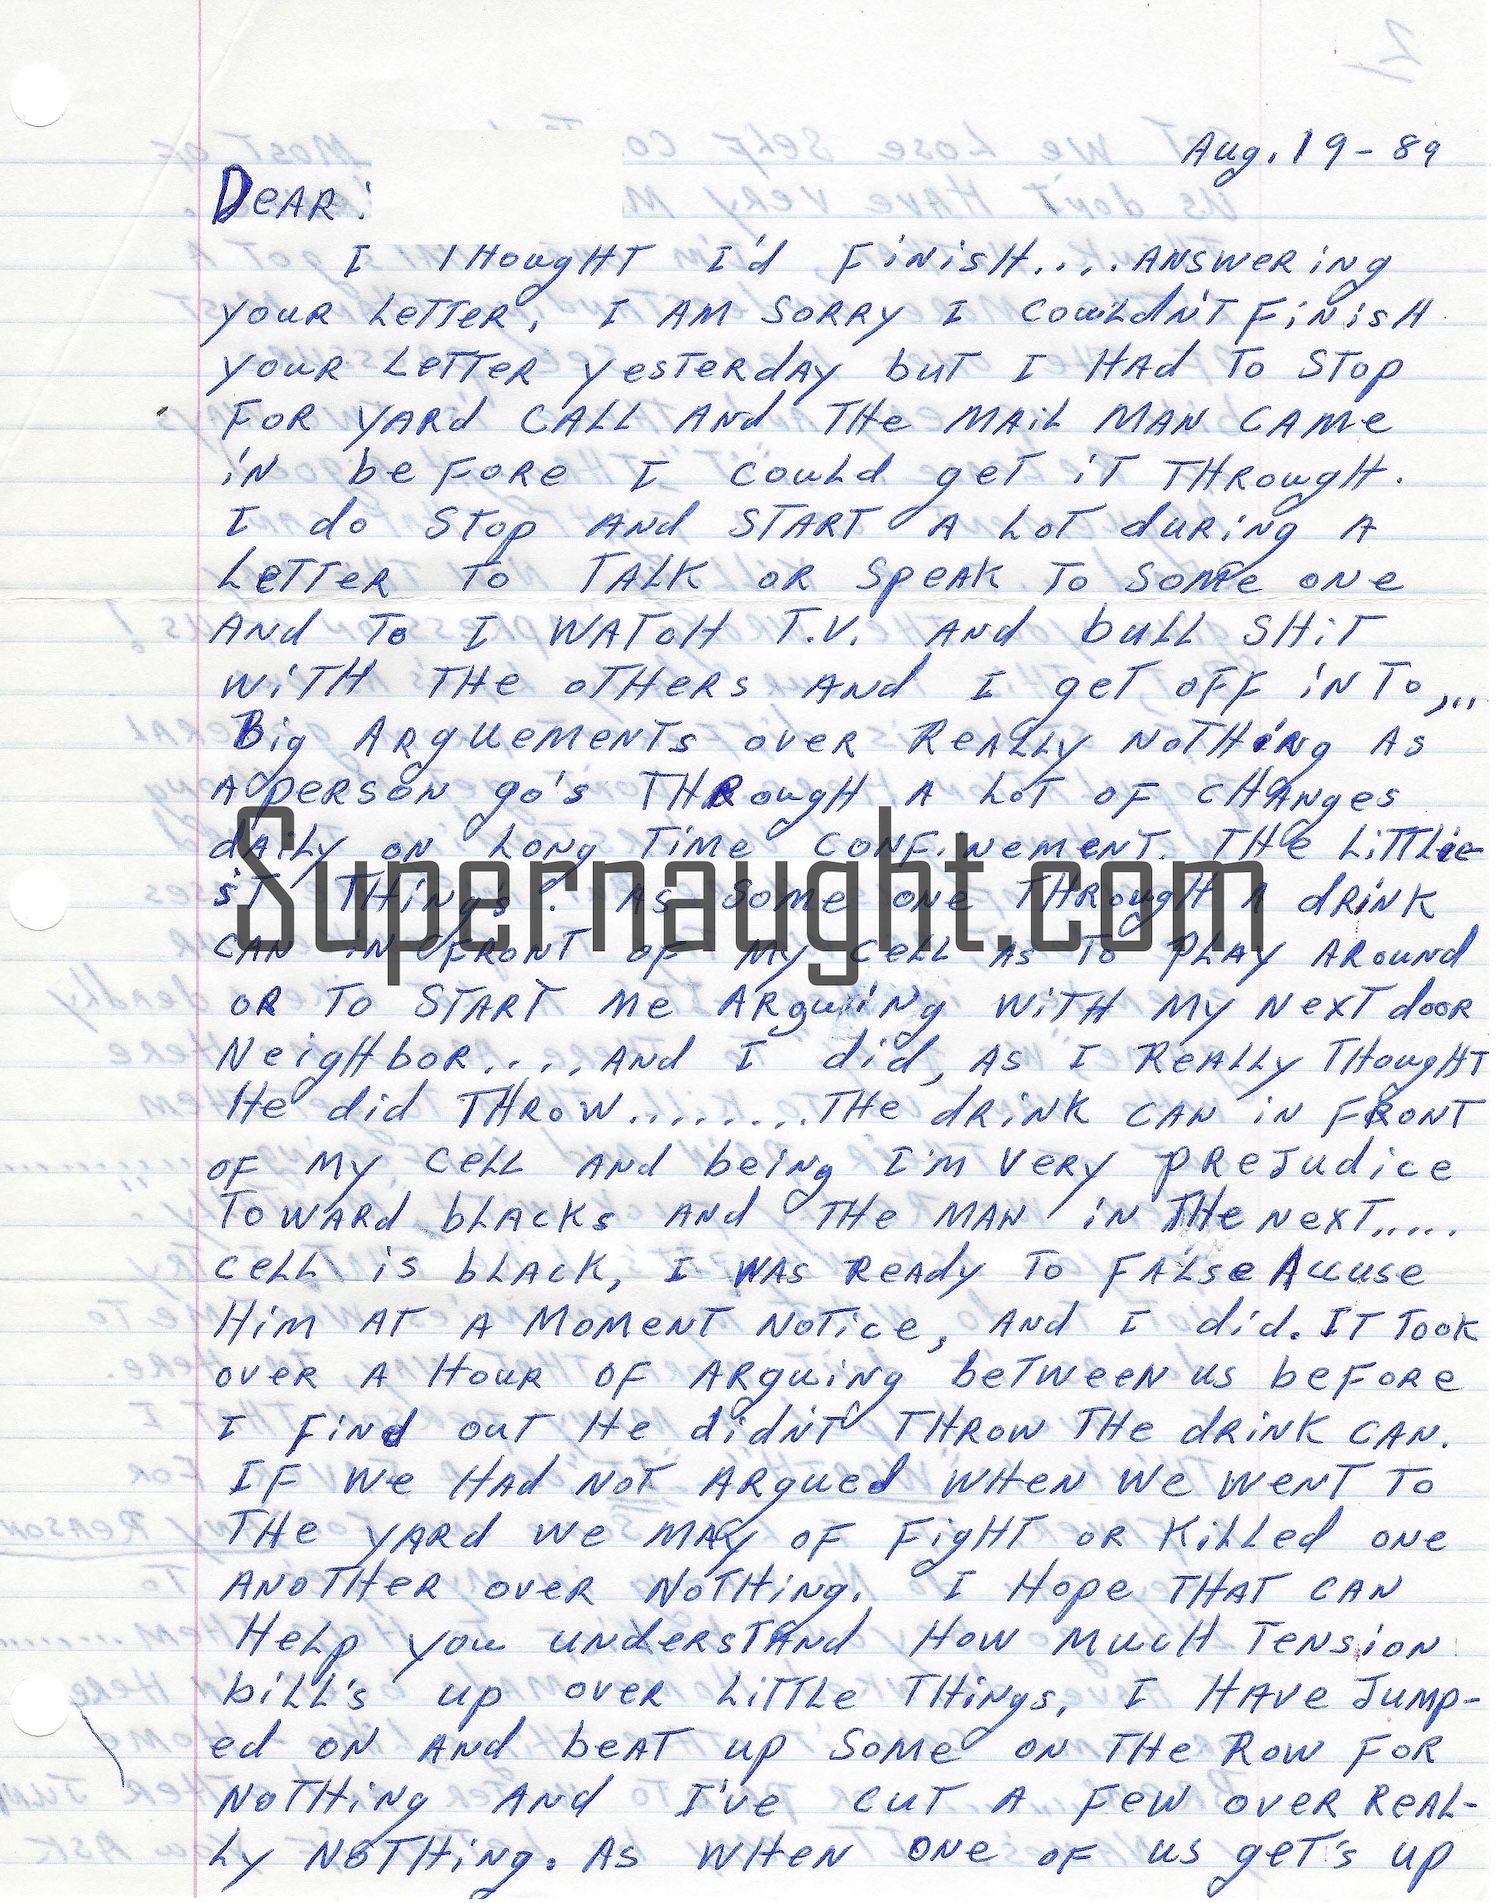 Aug. 19-89
Dear:
I thought I'd finish....answering
your letter, I am sorry I couldn't finish
your letter yesterday but I had to stop
for yard call and the mail man came
in before I could get it through.
I do stop and start a lot during a
letter to talk or speak to some one
and to I watch T.V. and bull shit
with the others and I get off in to,...
Big arguements over really nothing as
a person go's through a lot of changes
daily on long time confinement. The littlie-
st things. As some one through a drink
can in front of my cell as to play around
or to start me arguing with my next door
neighbor....and I did, as I really thought
he did throw.........the drink can in front
of my cell and being I'm very prejudice
toward blacks and the man in the next.....
cell is black, I was ready to false accuse
him at a moment notice, and I did. It took
over a hour of arguing between us before
I find out he didn't throw the drink can.
If we had not argued when we went to
the yard we may of fight or killed one
another over nothing. I hope that can
help you understand how much tension
bill's up over little things, I have jump-
ed on and beat up some on the row for
nothing and I've cut a few over real-
ly nothing. As when one of us get's up
Supernaught.com